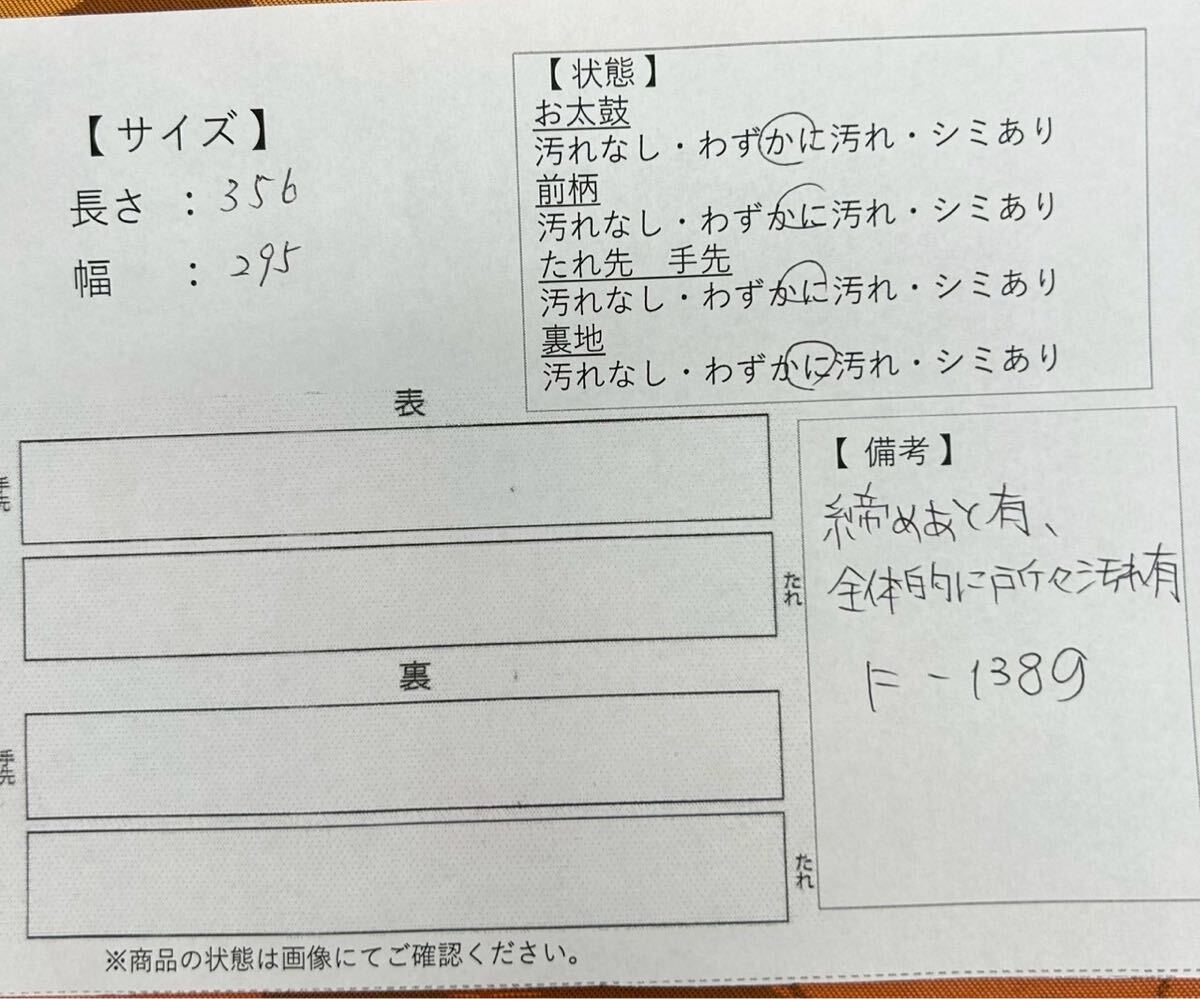 【サイズ】
長さ ：356
幅 ：295
【状態】
お太鼓
汚れなし・わずかに汚れ・シミあり
前柄
汚れなし・わずかに汚れ・シミあり
たれ先　手先
汚れなし・わずかに汚れ・シミあり
裏地
汚れなし・わずかに汚れ・シミあり
表
手先
たれ
裏
手先
たれ
【備考】
締めあと有、
全体的に所々汚れ有
F-1389
※商品の状態は画像にてご確認ください。